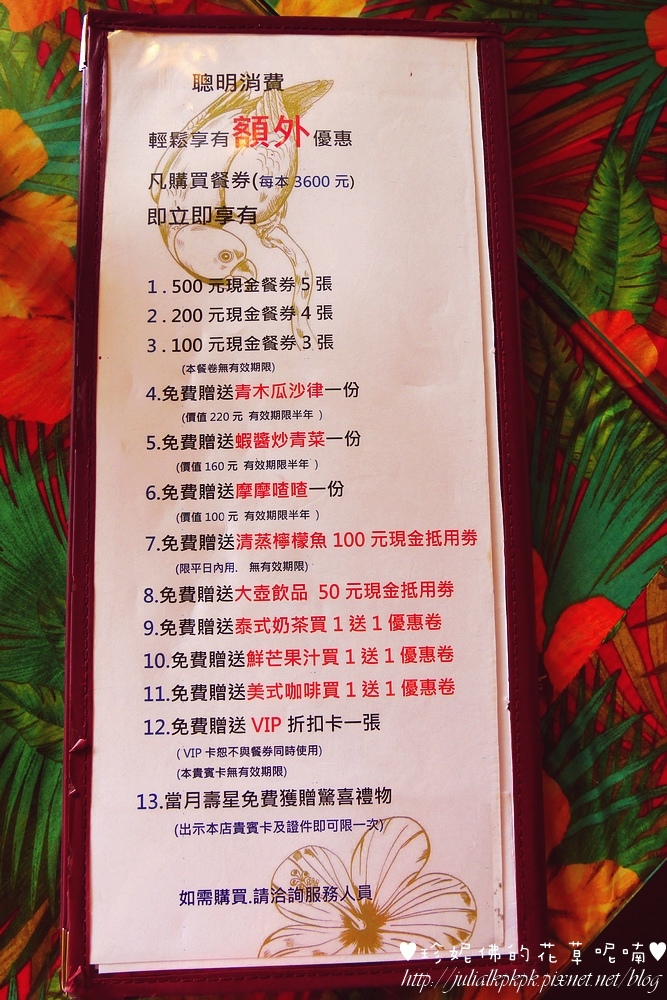 聰明消費
輕鬆享有額外優惠
凡購買餐券(每本 3600 元)
即立即享有
1 . 500 元現金餐券 5 張
2 . 200 元現金餐券 4 張
3 . 100 元現金餐券 3 張
(本餐卷無有效期限)
4.免費贈送青木瓜沙律一份
(價值 220 元 有效期限半年 )
5.免費贈送蝦醬炒青菜一份
(價值 160 元 有效期限半年 )
6.免費贈送摩摩喳喳一份
(價值 100 元 有效期限半年 )
7.免費贈送清蒸檸檬魚 100 元現金抵用劵
(限平日內用. 無有效期限)
8.免費贈送大壺飲品 50 元現金抵用劵
9.免費贈送泰式奶茶買 1 送 1 優惠卷
10.免費贈送鮮芒果汁買 1 送 1 優惠卷
11.免費贈送美式咖啡買 1 送 1 優惠卷
12.免費贈送 VIP 折扣卡一張
( VIP 卡恕不與餐券同時使用)
(本貴賓卡無有效期限)
13.當月壽星免費獲贈驚喜禮物
(出示本店貴賓卡及證件即可限一次)
如需購買.請洽詢服務人員
♥珍妮佛的花草呢喃♥
http://julialkpkpk.pixnet.net/blog